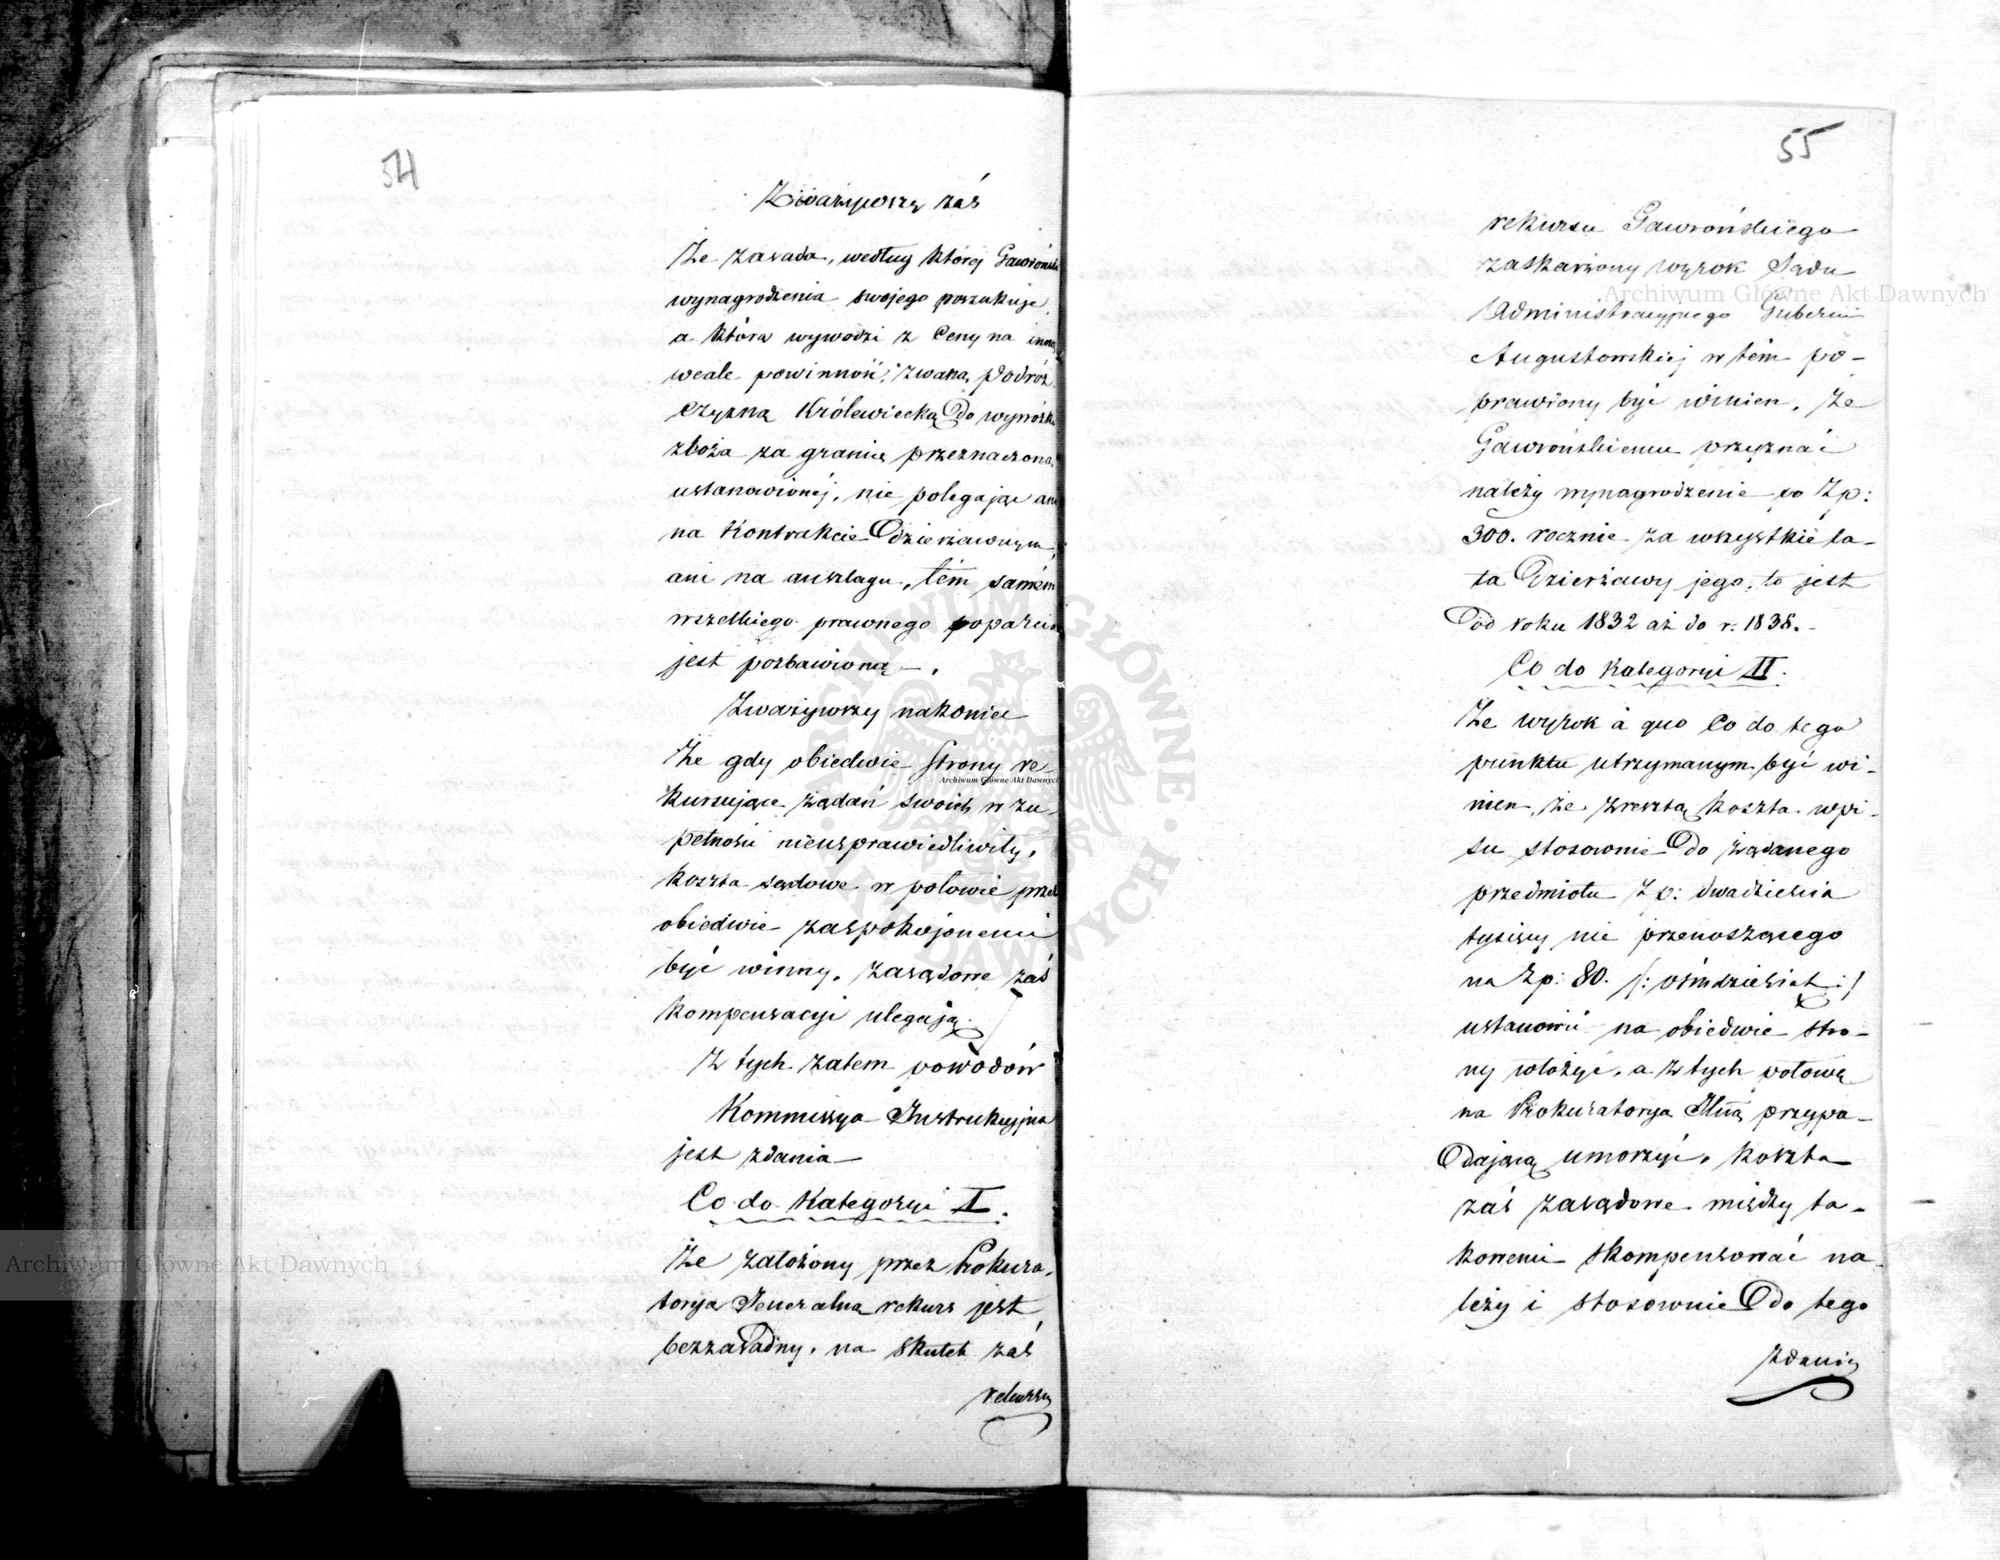 54
Zważywszy zaś
Że zasada, według której Gawroński
wynagrodzenia swojego poszukuje,
a którą wywodzi z Ceny na inną
wcale powinność, zwaną podróż
czyzną Królewiecką do wywózki
zboża za granicę przeznaczoną,
ustanowionej, nie polegając ani
na Kontrakcie Dzierżawnym,
ani na anszlagu, tém samém
wszelkiego prawnego poparcia
jest pozbawioną.
Zważywszy nakoniec
Że gdy obiedwie strony re-
kursujące żądań swoich w zu-
pełności nieusprawiedliwiły,
koszta sądowe w połowie przez
obiedwie zaspokojonemi
być winny, zasądowe zaś
kompensacyi ulegają.
Z tych zatem powodów
Kommissya Instrukcyjna
jest zdania
Co do Kategoryi I.
Że założony przez Prokura-
torya Jeneralną rekurs jest
bezzasadny, na skutek zaś
rekursu
55
rekursu Gawrońskiego
zaskarżony wyrok Sądu
Administracyjnego Gubernii
Augustowskiej w tém po-
prawiony być winien, że
Gawrońskiemu przyznać
należy wynagrodzenie po Zp:
300. rocznie za wszystkie la-
ta Dzierżawy jego, to jest
Od roku 1832 aż do r: 1838.
Co do kategoryi II.
Że wyrok à quo Co do tego
punktu utrzymanym być wi-
nien, że zresztą koszta wpi-
su stosownie Do żądanego
przedmiotu Zp: dwadzieścia
tysięcy nie przenoszącego
na Zp: 80. /: ośmdziesiąt :/
ustanowić na obiedwie stro-
ny włożyć, a z tych połowę
na Prokuratorya Jlną przypa-
Dającą umorzyć, koszta
zaś zasądowe między ta-
kowemi skompensować na-
leży i stosownie Do tego
zdania
Archiwum Główne Akt Dawnych
Archiwum Główne Akt Dawnych
Archiwum Główne Akt Dawnych
ARCHIWUM GŁÓWNE AKT DAWNYCH